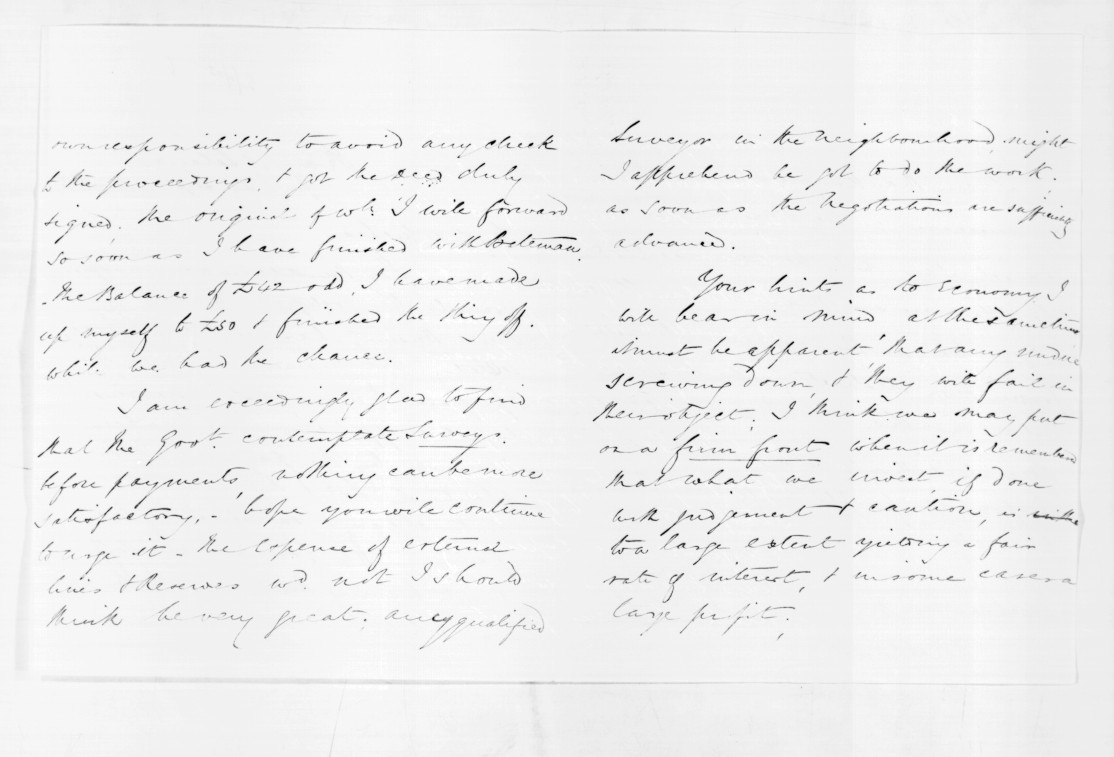 own responsibility to avoid any check
to the proceedings, & got the deed duly
signed, the original of wh: I will forward
so soon as I have finished with Bateman.
The Balance of £42 odd, I have made
up myself to £50 & finished the thing off.
while we had the chance.
I am exceedingly glad to find
that the Govt. contemplate Surveys.
before payments, nothing can be more
satisfactory, - hope you will continue
to urge it - the expense of external
lines & Reserves wd. not I should
think be very great, any qualified
Surveyor in the neighbourhood, might
I apprehend be got to do the work.
as soon as the Negotiations are suffiny
advanced.
Your hints as to Economy I
will bear in mind at the same time
it must be apparent, that any undue
screwing down, & they will fail in
their object. I think we may put
on a firm front when it is remembered
that what we invest, if done
with judgement & caution, is in the
to a large extent yielding a fair
rate of interest, & in some cases a
large profit.